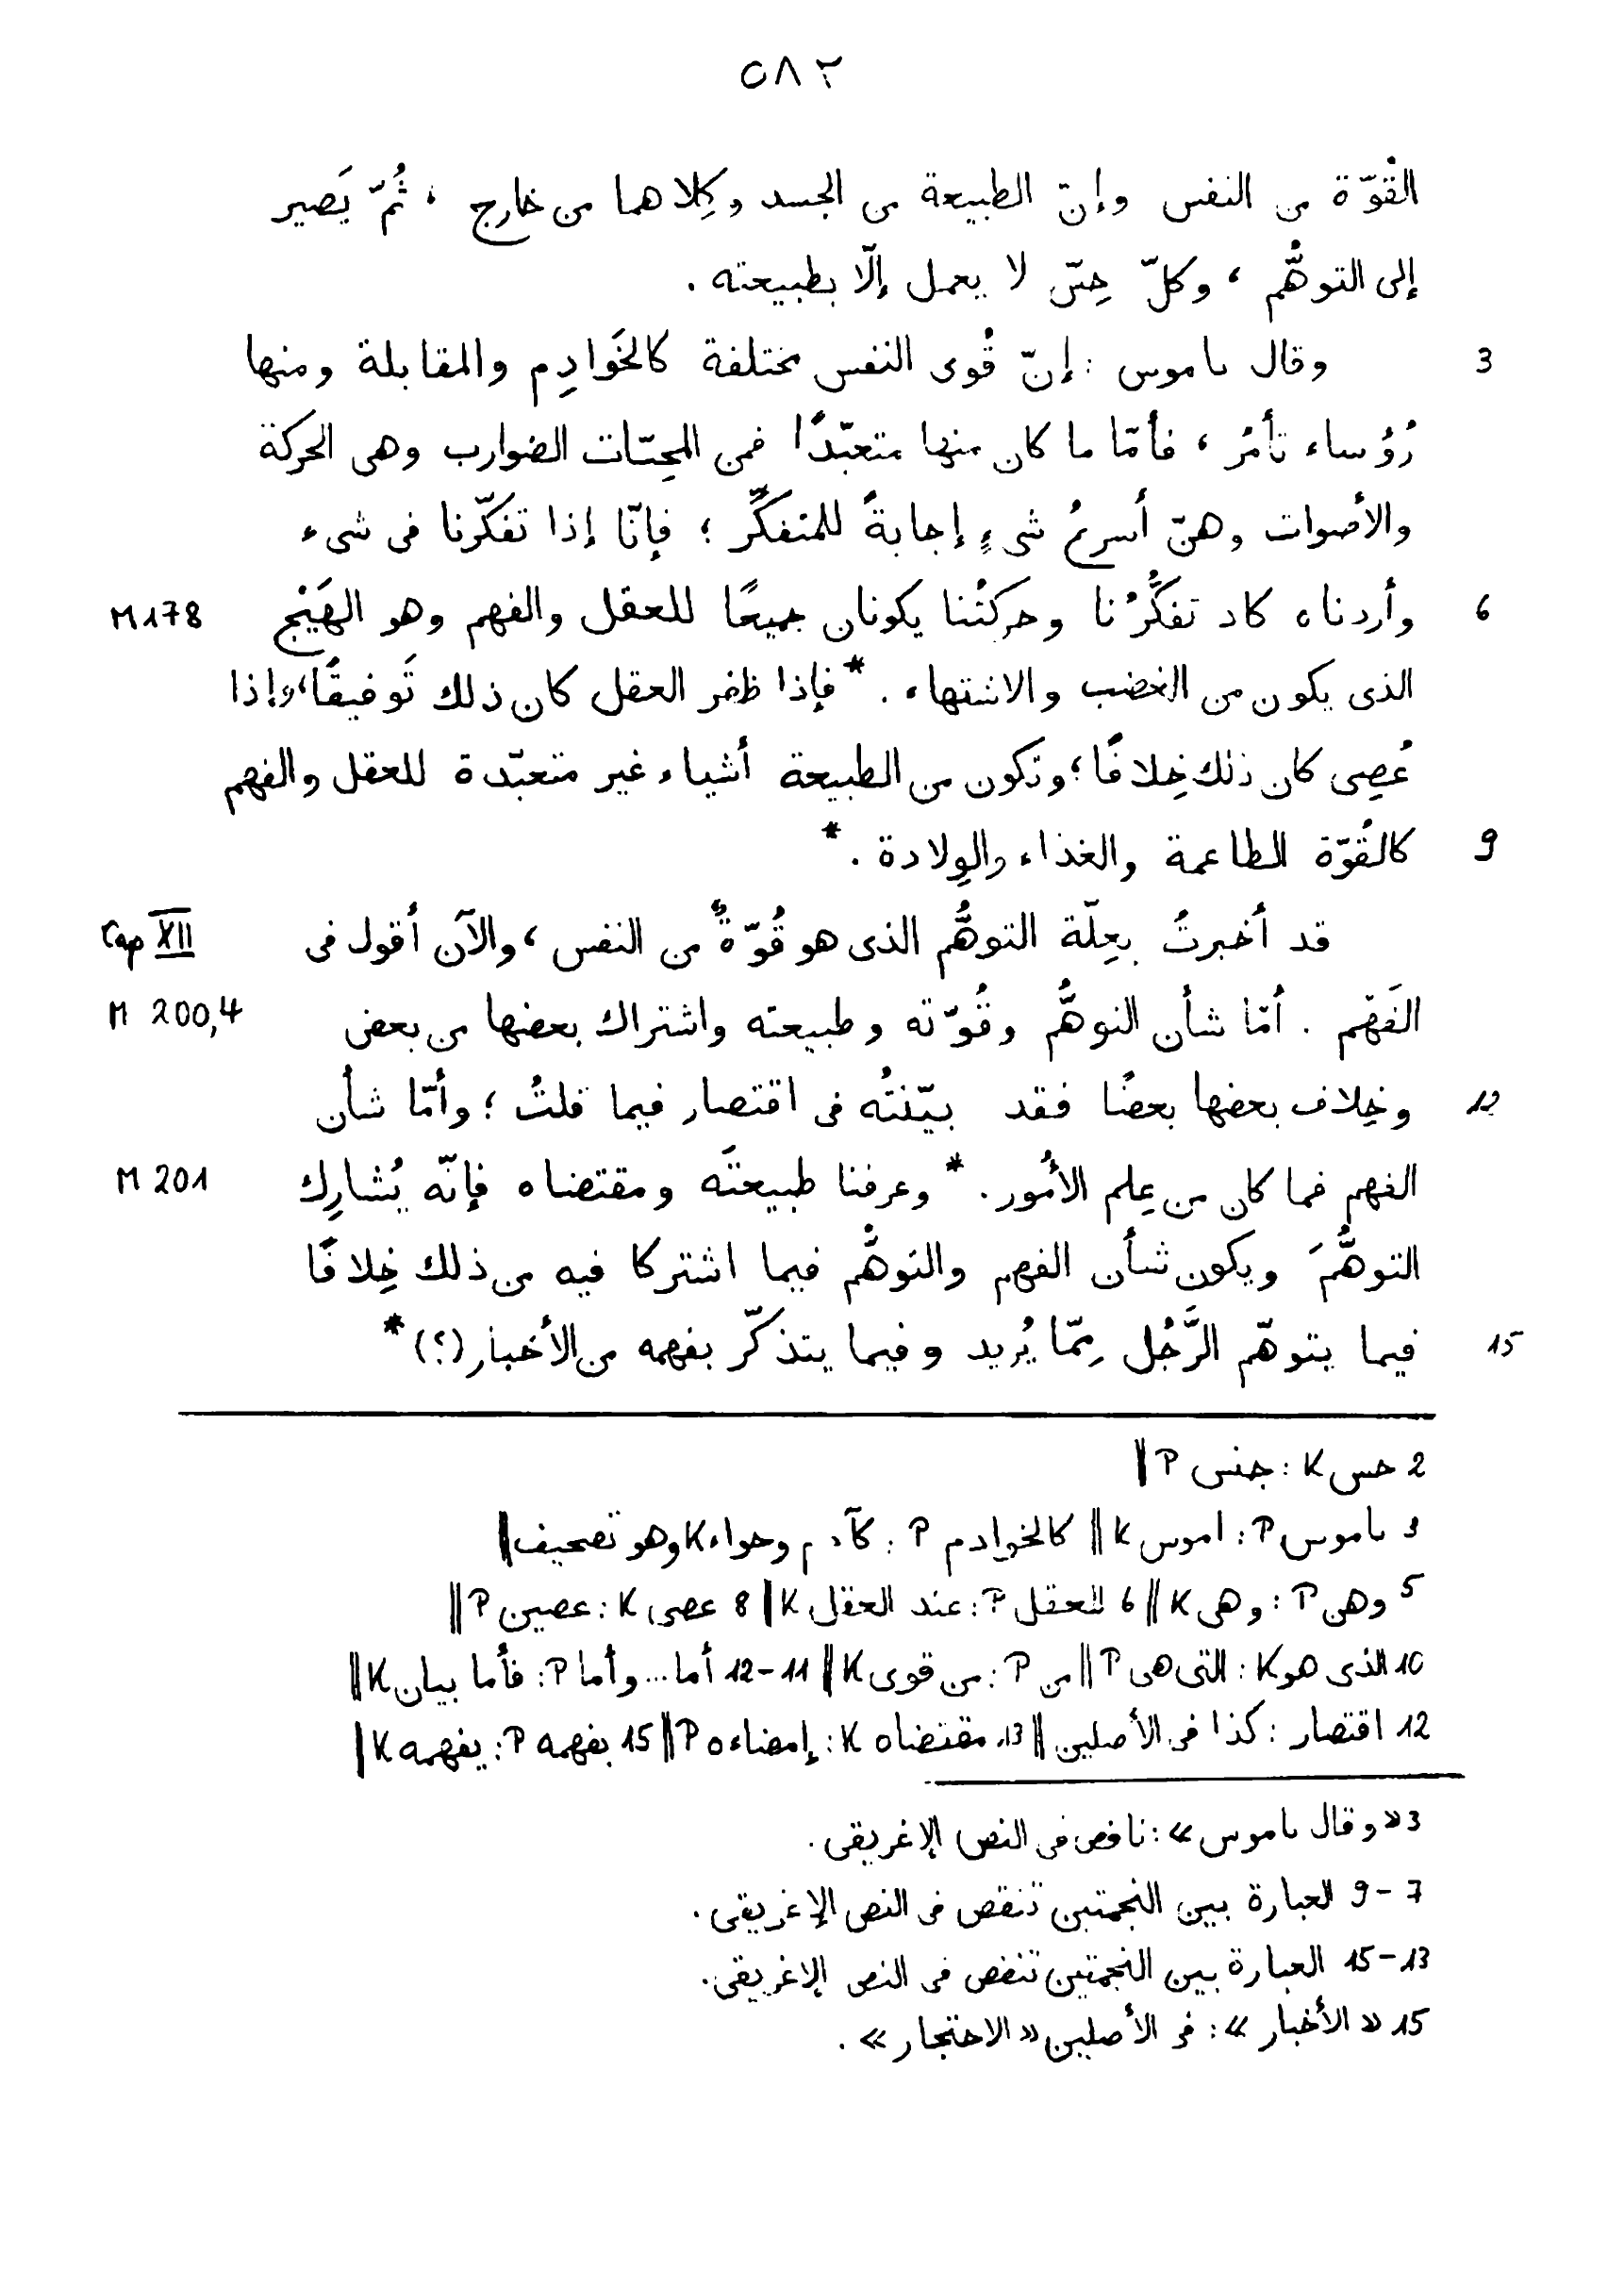 ٥٨٢
القُوّة من النفس وإنّ الطبيعة من الجسد وكِلاهما من خارج ، ثُمّ يَصير
إلى التوهُّم ، وكلّ حِسّ لا يعمل إلّا بطبيعته .
3 وقال ىاموس : إنّ قُوى النفس مختلفة كالخَوادِم والمقابلة ومنها
رُؤساء تأمُر ، فأمّا ما كان منها متعبّدًا فمن المجسّات الضوارب وهى الحركة
والأصوات وهنّ أسرعُ شىءٍ إجابةً للمتفكِّر ؛ فإنّا إذا تفكّرنا فى شىء
6 وأردناه كاد تفكُّرُنا وحركتُنا يكونان جميعًا للعقل والفهم وهو الهَيْج M 178
الذى يكون من الغضب والانتهاء . * فإذا ظفر العقل كان ذلك تَوفيقًا، وإذا
عُصِى كان ذلك خِلافًا ؛ وتكون من الطبيعة أشياء غير متعبّدة للعقل والفهم
9 كالقُوّة الطاعمة والغذاء والوِلادة . *
قد أخبرتُ بعِلّة التوهُّم الذى هو قُوّةٌ من النفس ، والآن أقول فى Cap XII
الفَهْم . أمّا شأن التوهُّم وقُوّته وطبيعته واشتراك بعضها من بعض M 200,4
12 وخِلاف بعضها بعضًا فقد بيّنتُه فى اقتصار فيما قلتُ ؛ وأمّا شأن
الفهم فما كان من عِلم الأُمور . * وعرفنا طبيعتَه ومقتضاه فإنّه يُشارِك M 201
التوهُّمَ ويكون شأن الفهم والتوهُّم فيما اشتركا فيه من ذلك خِلافًا
15 فيما يتوهّم الرَّجُل مِمّا يُريد وفيما يتذكّر بفهمه من الأخبار (؟) *
2 حس K : جنس P ||
3 ىاموس P : اموس K || كالخوادم P : كآدم وحواء K وهو تصحيف ||
5 وهن P : وهى K || 6 للعقل P : عند العقل K || 8 عصى K : عصين P ||
10 الذى هو K : التى هى P || من P : من قوى K || 11-12 أما ... وأما P : فأما بيان K ||
12 اقتصار : كذا فى الأصلين || 13 مقتضاه K : إمضاءه P || 15 بفهمه P : يفهمه K ||
3 «وقال ىاموس» : ناقص فى النص الإغريقى .
7-9 العبارة بين النجمتين تنقص فى النص الإغريقى .
13-15 العبارة بين النجمتين تنقص فى النص الإغريقى .
15 «الأخبار» : فى الأصلين «الاحتجار» .